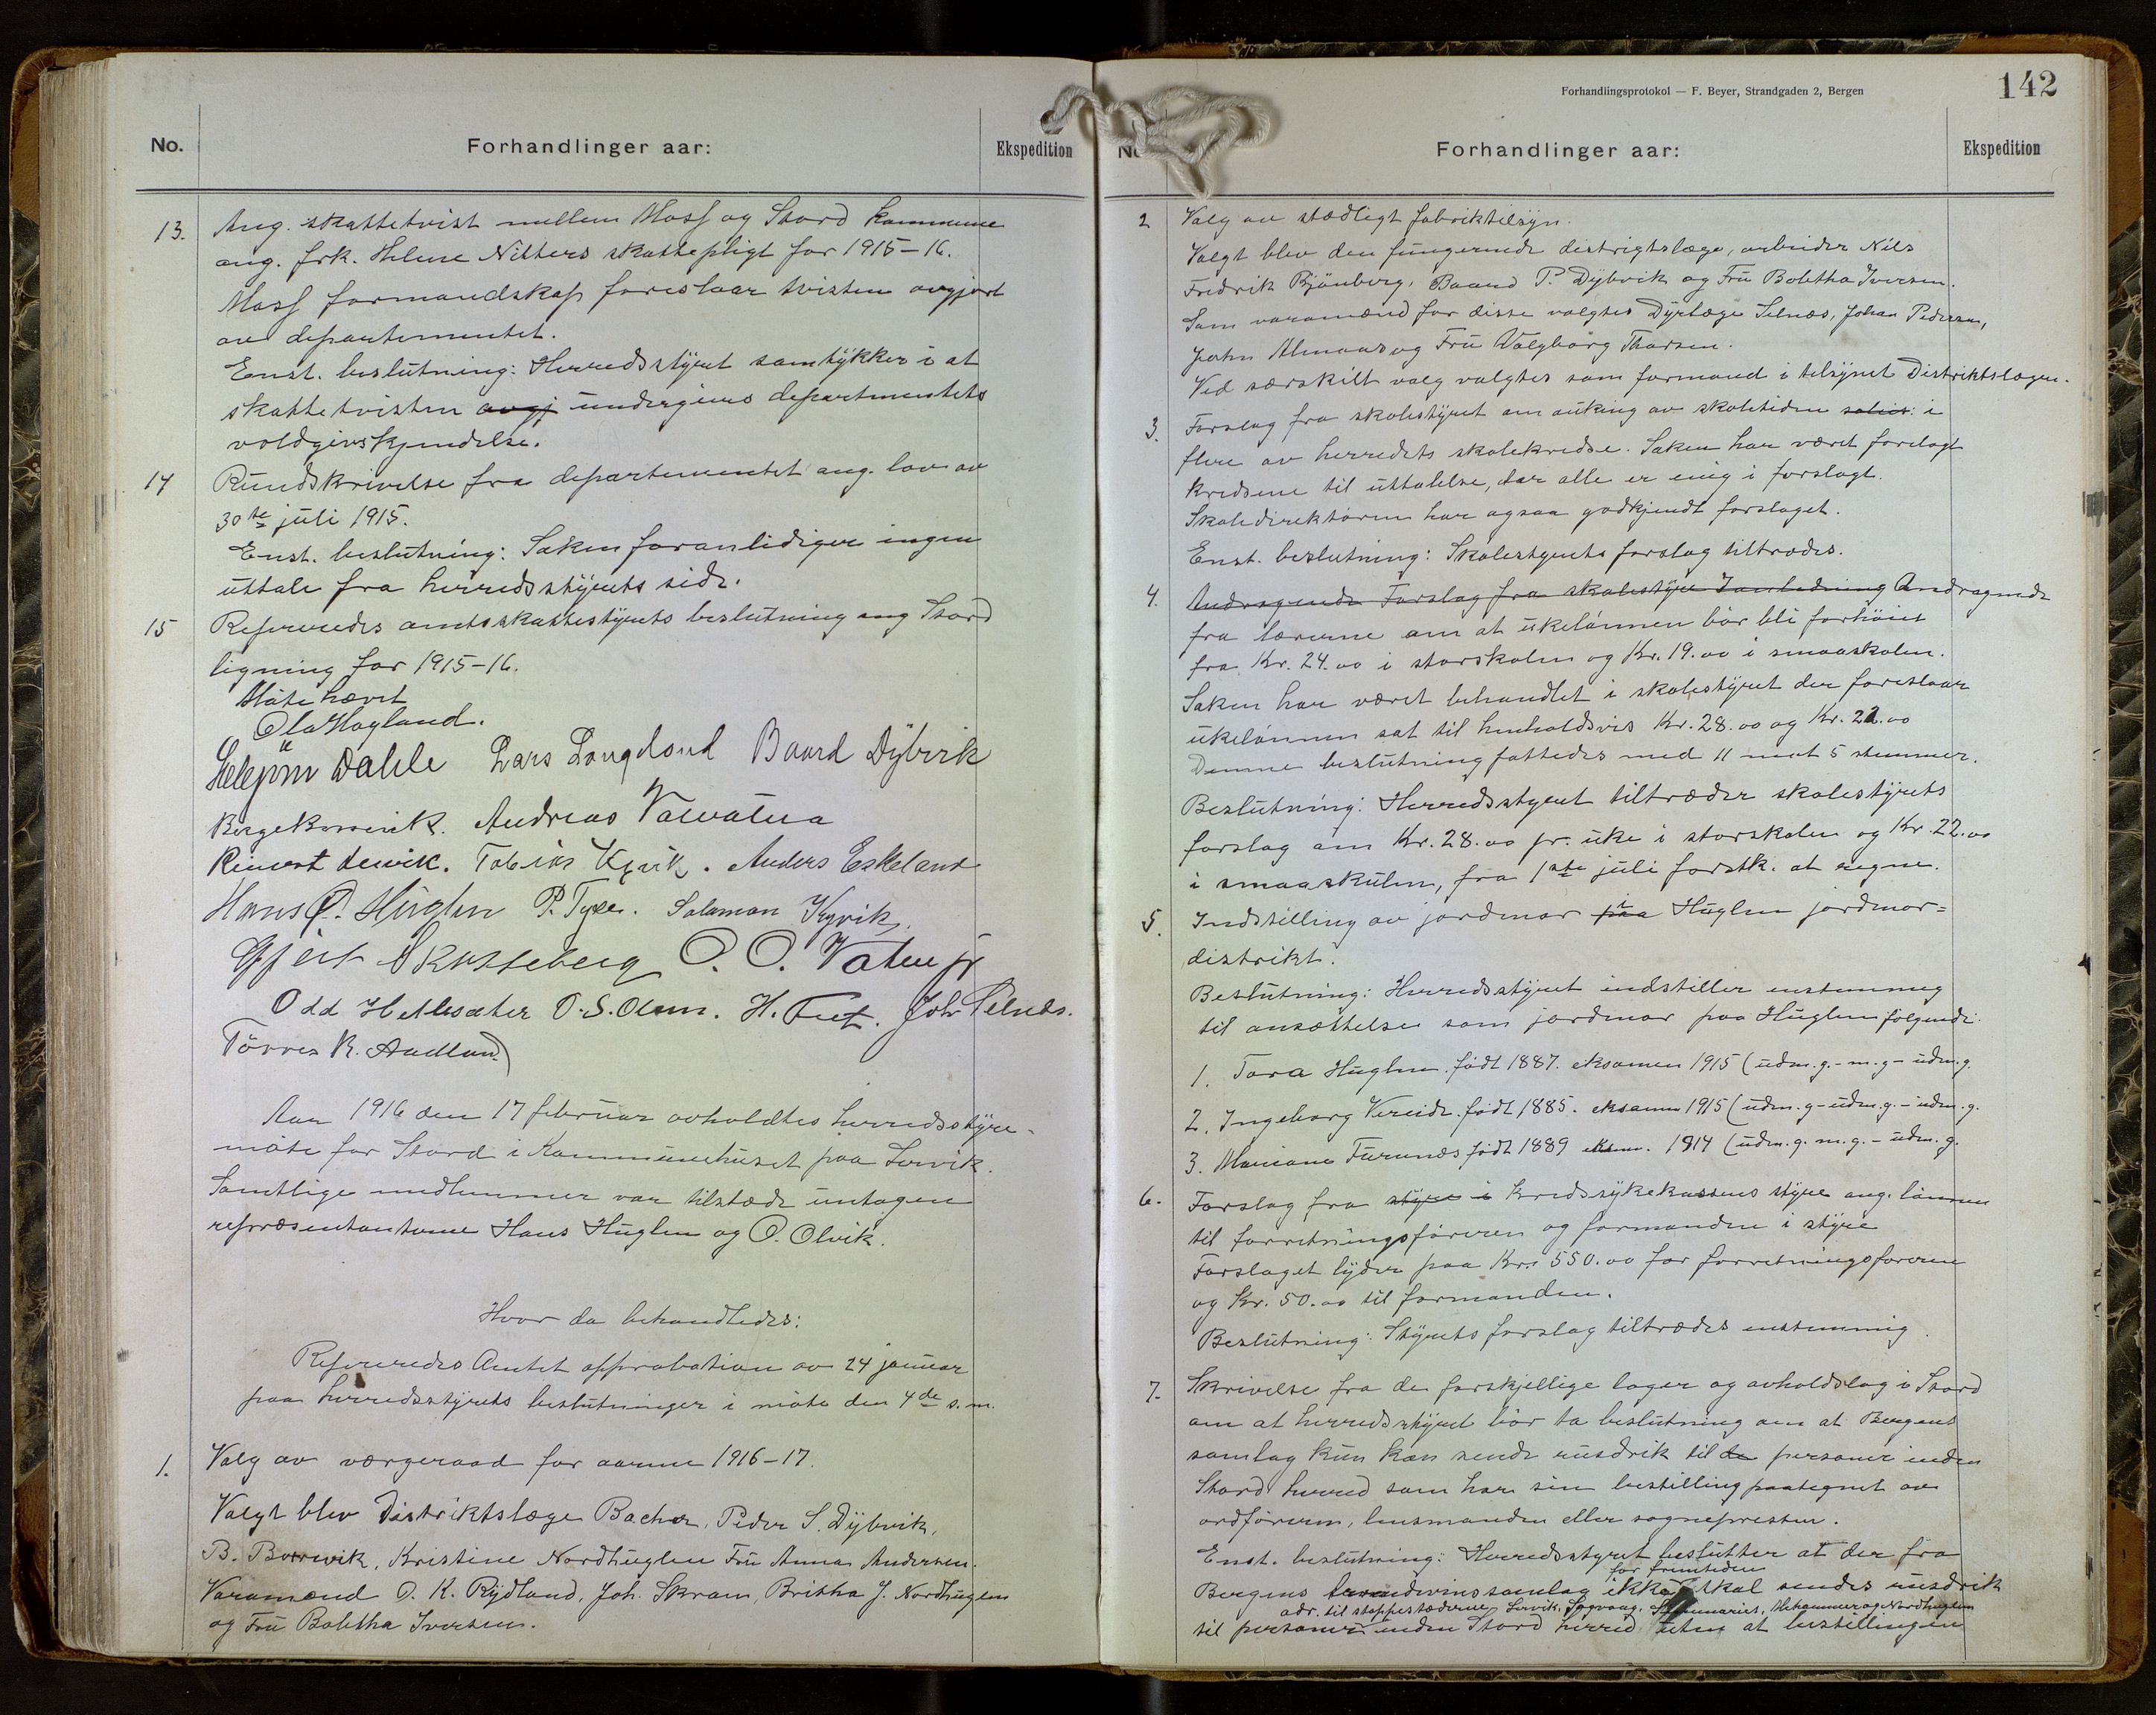 No.
Forhandlinger aar:
Ekspedition
13. Ang. skattetvist mellem Moss og Stord kommune
ang. frk. Helene Nitters skattepligt for 1915-16.
Moss formandskap foreslaar tvisten avgjort
av departementet.
Enst. beslutning: Herredsstyret samtykker i at
skattetvisten avgj undergives departementets
voldgivskjendelse.
14 Rundskrivelse fra departementet ang. lov av
30te juli 1915.
Enst. beslutning: Saken foranlediger ingen
uttale fra herredsstyrets side.
15 Refereredes amtsskattestyrets beslutning ang Stord
ligning for 1915-16.
Møte hævet
Ola Hogland.
Dahle Lars Langeland Baard Dybvik
Andreas Valvatna
Reinert Tobias Kyvik. Anders Eskeland
Hans O. Huglen P. Salamon Kyvik.
Gjert O. O. Vatne jr
Odd Hetlesæter O. S. Olsen. H. Joh Selnes.
Tørres K. Aadland
Aar 1916 den 17 februar avholdtes herredsstyre-
møte for Stord i Kommunehuset paa Lervik.
Samtlige medlemmer var tilstæde untagen
repræsentanterne Hans Huglen og O. Olvik.
Hvor da behandledes:
Refereredes Amtet approbation av 24 januar
paa herredsstyrets beslutninger i møte den 4de s.m.
1. Valg av værgeraad for aarene 1916-17.
Valgt blev Distriktslæge Bacher, Peder S. Dybvik,
B. Borrevik, Kristine Nordhuglen Fru Anna Andersen.
Varamænd O. K. Rydland, Joh. Skram, Britha J. Nordhuglen
og Fru Boletha Iversen.
Forhandlingsprotokol — F. Beyer, Strandgaden 2, Bergen
142
No
Forhandlinger aar:
Ekspedition
2 Valg av stædligt fabriktilsyn.
Valgt blev den fungerende distrigtslæge, arbeider Nils
Fredrik Bjönberg, Baard P. Dybvik og Fru Boletha Iversen.
Som varamænd for disse valgtes Dyrlæge Selnæs, Johan Pedersen,
John Almaas og Fru Valgborg Thorsen.
Ved særskilt valg valgtes som formand i tilsynet Distriktslægen.
3. Forslag fra skolestyret om øuking av skoletiden i
flere av herredets skolekredse. Saken har været forelagt
kredsene til uttalelse, der alle er enig i forslagt.
Skoledirektøren har ogsaa godkjendt forslaget.
Enst. beslutning: Skolestyrets forslag tiltrædes.
4. Andragende Forslag fra skolestyre Andragende
fra lærerne om at ukelønnen bør bli forhøiet
fra Kr. 24.00 i storskolen og Kr. 19.00 i smaaskolen.
Saken har været behandlet i skolestyret der foreslaar
ukelønnen sat til henholdsvis Kr. 28.00 og Kr. 22.00
Denne beslutning fattedes med 11 mot 5 stemmer.
Beslutning: Herredsstyret tiltræder skolestyrets
forslag om Kr. 28.00 pr. uke i storskolen og Kr. 22.00
i smaaskulen, fra 1ste juli førstk. at regne.
5. Indstilling av jordmor paa i Huglen jordmor=
distrikt.
Beslutning: Herredsstyret indstiller enstemmig
til ansættelse som jordmor paa Huglen følgende:
1. Tora Huglen. født 1887. eksamen 1915 (udm.g.-m.g-udm.g.
2. Ingeborg Vereide. født 1885. eksamen 1915 (udm.g-udm.g.-udm.g.
3. Mariane Furunæs født 1889 eksm. 1914 (udm.g. m.g.-udm.g.
6. Forslag fra styre i kredssykekassens styre ang. lønnen
til forretningsføreren og formanden i styre
Forslaget lyder paa Kr. 550.00 for forretningsføreren
og Kr. 50.00 til formanden.
Beslutning: Styrets forslag tiltrædes enstemmig.
7. Skrivelse fra de forskjellige loger og avholdslag i Stord
om at herredsstyret bør ta beslutning om at Bergens
samlag kun kan sende rusdrik til de personer inden
Stord herred som har sin bestilling paategnet av
ordføreren, lensmanden eller sognepresten.
Enst. beslutning: Herredsstyret beslutter at der fra
for fremtiden
Bergens brændevinssamlag ikke skal sendes rusdrik
adr. til stoppestæderne Lervik, Sagvaag, Seminariet, og Nordhuglen
til personer inden Stord herred uten at bestillingen